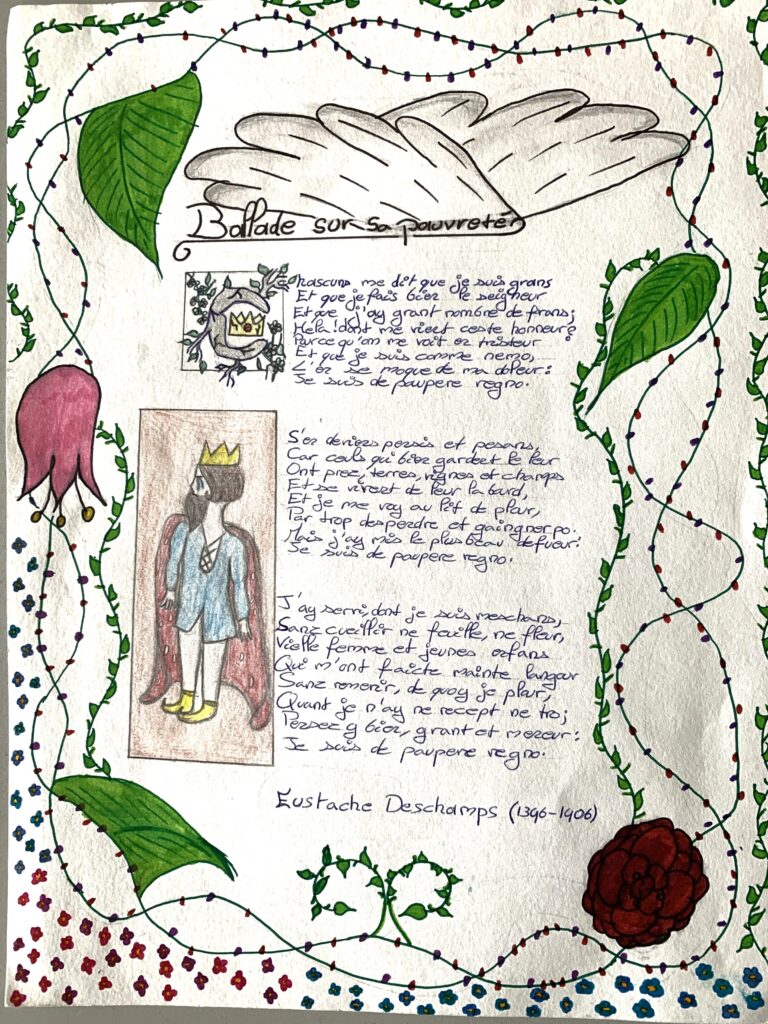 Ballade sur sa pauvreté
Chascuns me dit que je suis grans
Et que je fais bien le seigneur
Et que j'ay grant nombre de frans;
Hela! dont me vient ceste honneur?
Parce qu'on me voit en tristeur
Et que je suis comme nemo,
L'en se moque de ma doleur:
Je suis de paupere regno.
S'en deviens pensis et pesans,
Car ceuls qui bien gardent le leur
Ont prez, terres, vignes et champs
Et se vivent de leur labeur,
Et je me voy au lit de plour,
Par trop despendre et gaingner po.
Mais j'ay mis le plus beau defueur:
Je suis de paupere regno.
J'ay servi, dont je suis meschans,
Sanz cueillir ne feuille, ne fleur,
Vielle femme et jeunes enfans
Qui m'ont faicte mainte langour
Sanz remerir, de quoy je plour,
Quant je n'ay ne recept ne tro;
Pensez y bien, grant et meneur:
Je suis de paupere regno.
Eustache Deschamps (1346-1406)